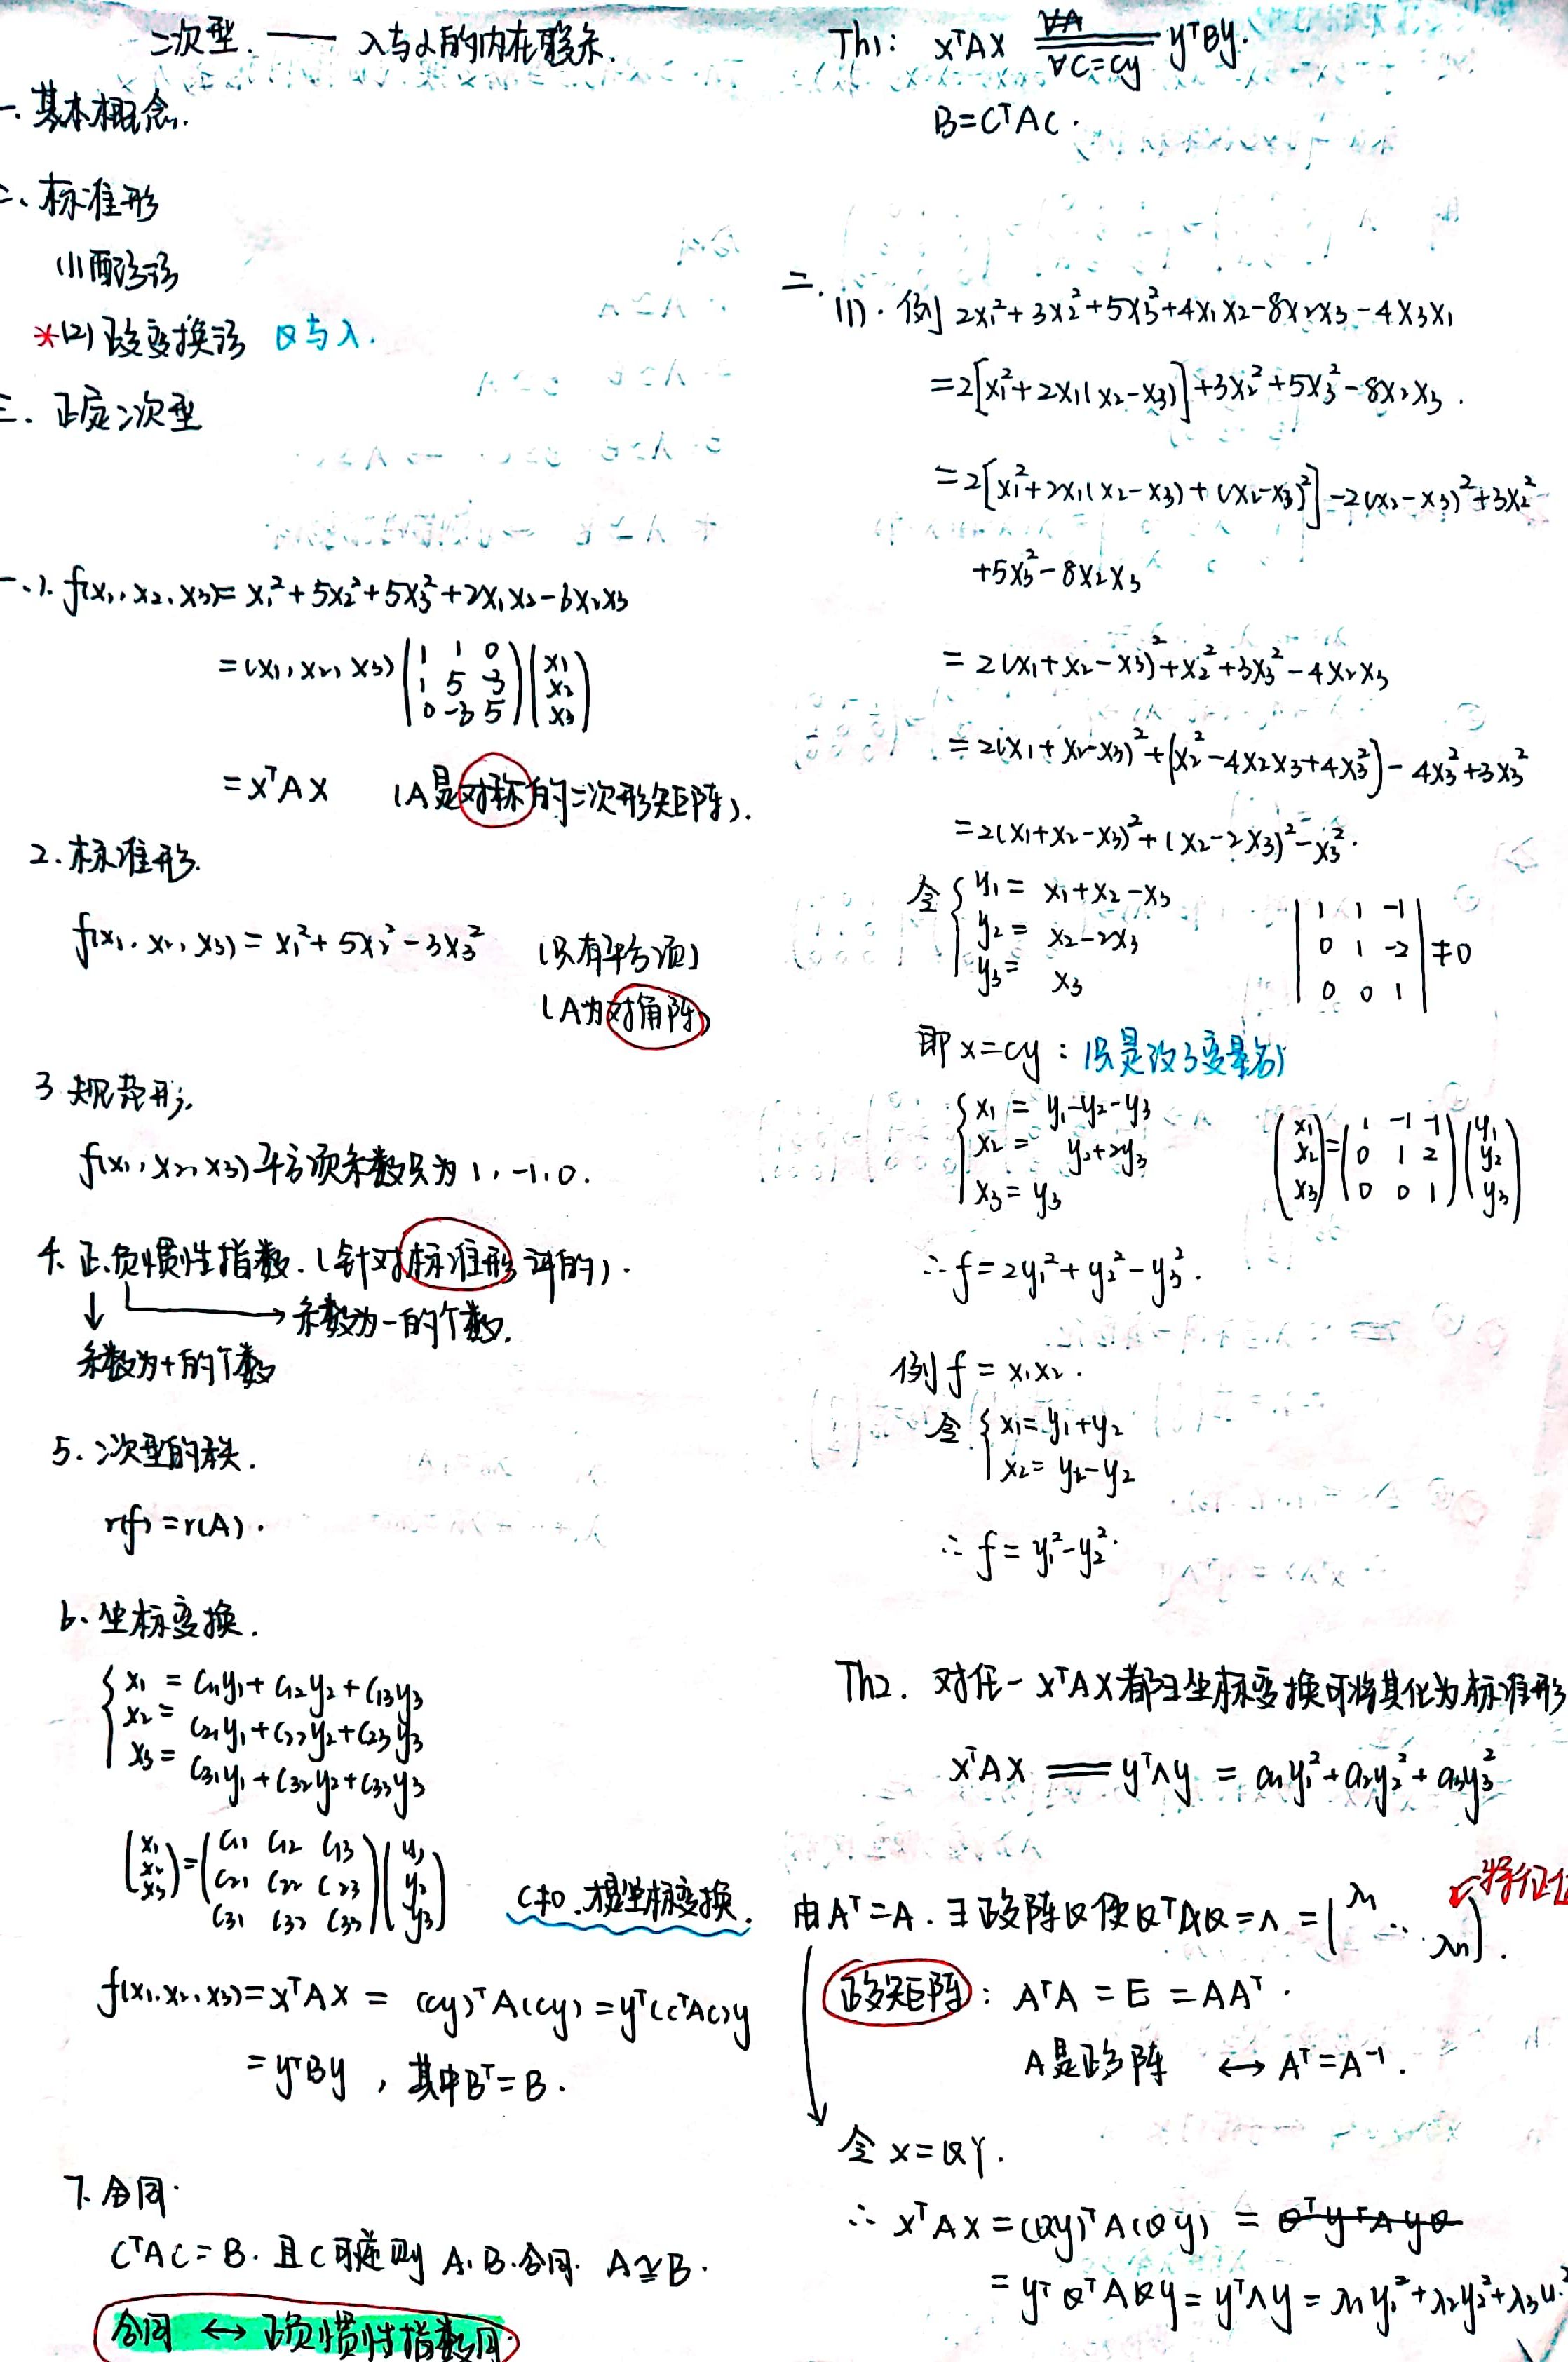 二次型. —— λ与α的内在联系.
一. 基本概念.
二、标准形
(1) 配方法
*(2) 正交变换法 Q与λ.
三. 正定二次型
一.1. f(x₁, x₂, x₃) = x₁² + 5x₂² + 5x₃² + 2x₁x₂ - 6x₂x₃
= (x₁, x₂, x₃) (1 1 0; 1 5 -3; 0 -3 5) (x₁; x₂; x₃)
= xᵀAx (A是对称的二次形矩阵).
2. 标准形.
f(x₁, x₂, x₃) = x₁² + 5x₂² - 3x₃² (只有平方项)
(A为对角阵)
3 规范形.
f(x₁, x₂, x₃) 平方项系数只为 1, -1, 0.
4. 正.负惯性指数. (针对标准形讲的).
↓ → 系数为-的个数.
系数为+的个数
5. 二次型的秩.
r(f) = r(A).
6. 坐标变换.
x₁ = c₁₁y₁ + c₁₂y₂ + c₁₃y₃
x₂ = c₂₁y₁ + c₂₂y₂ + c₂₃y₃
x₃ = c₃₁y₁ + c₃₂y₂ + c₃₃y₃
(x₁; x₂; x₃) = (c₁₁ c₁₂ c₁₃; c₂₁ c₂₂ c₂₃; c₃₁ c₃₂ c₃₃) (y₁; y₂; y₃) C≠0. 才是坐标变换.
f(x₁, x₂, x₃) = xᵀAx = (cy)ᵀA(cy) = yᵀ(cᵀAc)y
= yᵀBy , 其中Bᵀ = B.
7. 合同.
CᵀAC = B. 且C可逆 则 A. B. 合同. A≃B.
合同 ↔ 正负惯性指数同.
Th1: xᵀAx ∀A ∀C=cy yᵀBy.
B = CᵀAC.
二. (1). 例 2x₁² + 3x₂² + 5x₃² + 4x₁x₂ - 8x₂x₃ - 4x₃x₁
= 2[x₁² + 2x₁(x₂-x₃)] + 3x₂² + 5x₃² - 8x₂x₃.
= 2[x₁² + 2x₁(x₂-x₃) + (x₂-x₃)²] - 2(x₂-x₃)² + 3x₂²
+ 5x₃² - 8x₂x₃
= 2(x₁+x₂-x₃)² + x₂² + 3x₃² - 4x₂x₃
= 2(x₁+x₂-x₃)² + (x₂² - 4x₂x₃ + 4x₃²) - 4x₃² + 3x₃²
= 2(x₁+x₂-x₃)² + (x₂-2x₃)² - x₃².
令 y₁ = x₁+x₂-x₃
y₂ = x₂-2x₃
y₃ = x₃
|1 1 -1; 0 1 -2; 0 0 1| ≠ 0
即 x=cy : (只是改了变量名)
x₁ = y₁-y₂-y₃
x₂ = y₂+2y₃
x₃ = y₃
(x₁; x₂; x₃) = (1 -1 -1; 0 1 2; 0 0 1) (y₁; y₂; y₃)
∴ f = 2y₁² + y₂² - y₃².
例 f = x₁x₂.
令 x₁ = y₁+y₂
x₂ = y₁-y₂
∴ f = y₁²-y₂².
Th2. 对任一 xᵀAx 都∃坐标变换可将其化为标准形
xᵀAx = yᵀΛy = a₁y₁² + a₂y₂² + a₃y₃²
由Aᵀ=A. ∃正交阵Q使QᵀAQ = Λ = (λ₁ ⋱ λn). 特征值
正交矩阵: AᵀA = E = AAᵀ.
A是正交阵 ↔ Aᵀ=A⁻¹.
令 x=QY.
∴ xᵀAx = (Qy)ᵀA(Qy) = QᵀyᵀAyQ
= yᵀQᵀAQy = yᵀΛy = λ₁y₁² + λ₂y₂² + λ₃y₃²